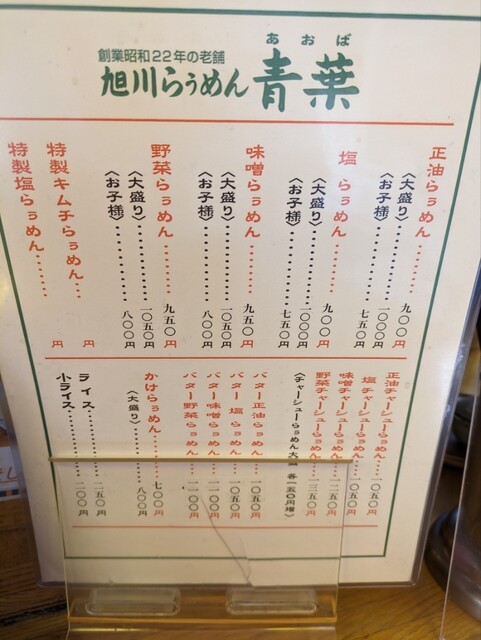 創業昭和22年の老舗
あおば
旭川らぅめん 青葉
正油らぅめん………九〇〇円
〈大盛り〉………一〇〇〇円
〈お子様〉………七五〇円
塩らぅめん………九〇〇円
〈大盛り〉………一〇〇〇円
〈お子様〉………七五〇円
味噌らぅめん………九五〇円
〈大盛り〉………一〇五〇円
〈お子様〉………八〇〇円
野菜らぅめん………九五〇円
〈大盛り〉………一〇五〇円
〈お子様〉………八〇〇円
特製キムチらぅめん……… 円
特製塩らぅめん……… 円
正油チャーシューらぅめん…
塩チャーシューらぅめん…
味噌チャーシューらぅめん…
野菜チャーシューらぅめん…
〈チャーシューらぅめん大盛 各一五〇円増〉
バター正油らぅめん…一〇五〇円
バター塩らぅめん…一〇五〇円
バター味噌らぅめん…一一〇〇円
バター野菜らぅめん…一一〇〇円
かけらぅめん………七〇〇円
〈大盛り〉………八〇〇円
ライス………二五〇円
小ライス………二〇〇円